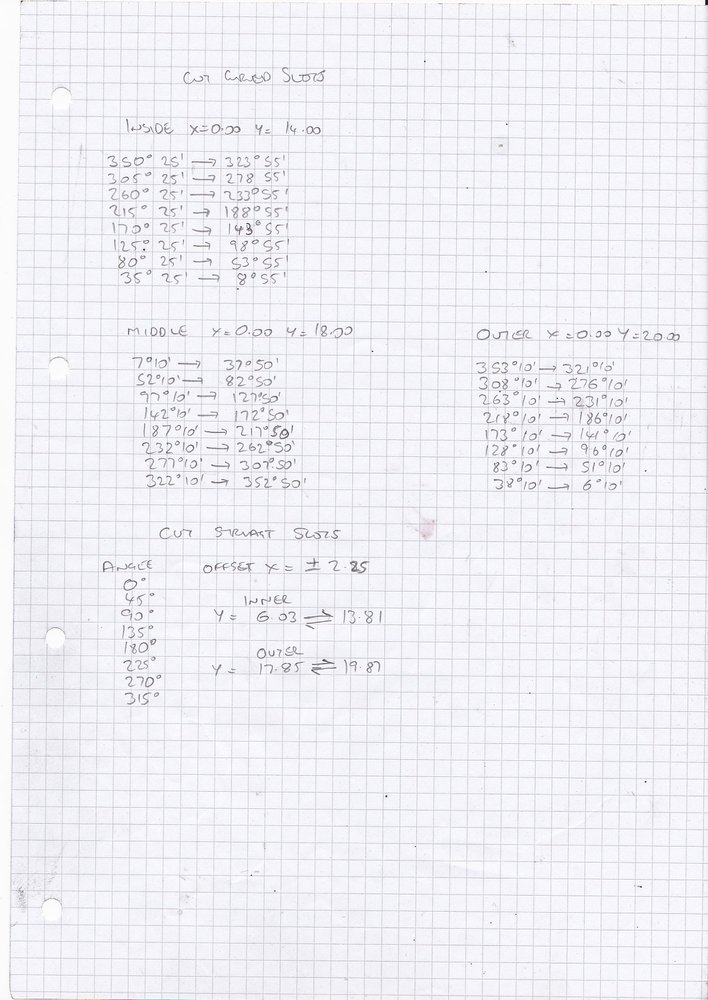 CUT CURVED SLOTS
INSIDE X=0.00 Y= 14.00
350° 25' → 323° 55'
305° 25' → 278 55'
260° 25' → 233° 55'
215° 25' → 188° 55'
170° 25' → 143° 55'
125° 25' → 98° 55'
80° 25' → 53° 55'
35° 25' → 8° 55'
MIDDLE X=0.00 Y=18.00
7°10' → 37°50'
52°10' → 82°50'
97°10' → 127°50'
142°10' → 172°50'
187°10' → 217°50'
232°10' → 262°50'
277°10' → 307°50'
322°10' → 352°50'
OUTER X=0.00 Y=20.00
353°10' → 321°10'
308°10' → 276°10'
263°10' → 231°10'
218°10' → 186°10'
173°10' → 141°10'
128°10' → 96°10'
83°10' → 51°10'
38°10' → 6°10'
CUT STRIAGT SLOTS
ANGLE
0°
45°
90°
135°
180°
225°
270°
315°
OFFSET X = ± 2.25
INNER
Y = 6.03 ⇌ 13.81
OUTER
Y = 17.85 ⇌ 19.87